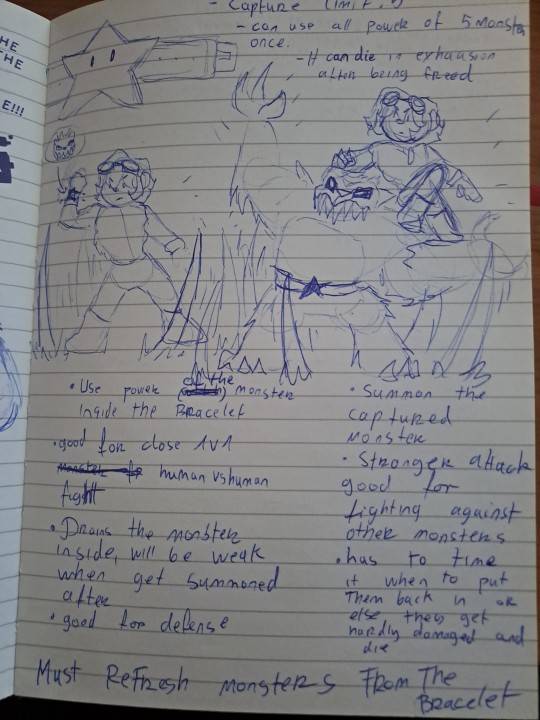 HE
THE
E!!!
- Capture limit: 
- can use all power of 5 Monster
once.
- It can die in exhausion
after being freed
• Use power of the monster
Inside the Bracelet
• good for close 1v1
human vs human
fight
• Drains the monster
inside, will be weak
when get summoned
after
• good for defense
• Summon the
captured
monster
• Stronger attack
good for
fighting against
other monsters
• has to time
it when to put
Them back in or
else they get
hardly damaged and
die
Must Refresh monsters From The
Bracelet